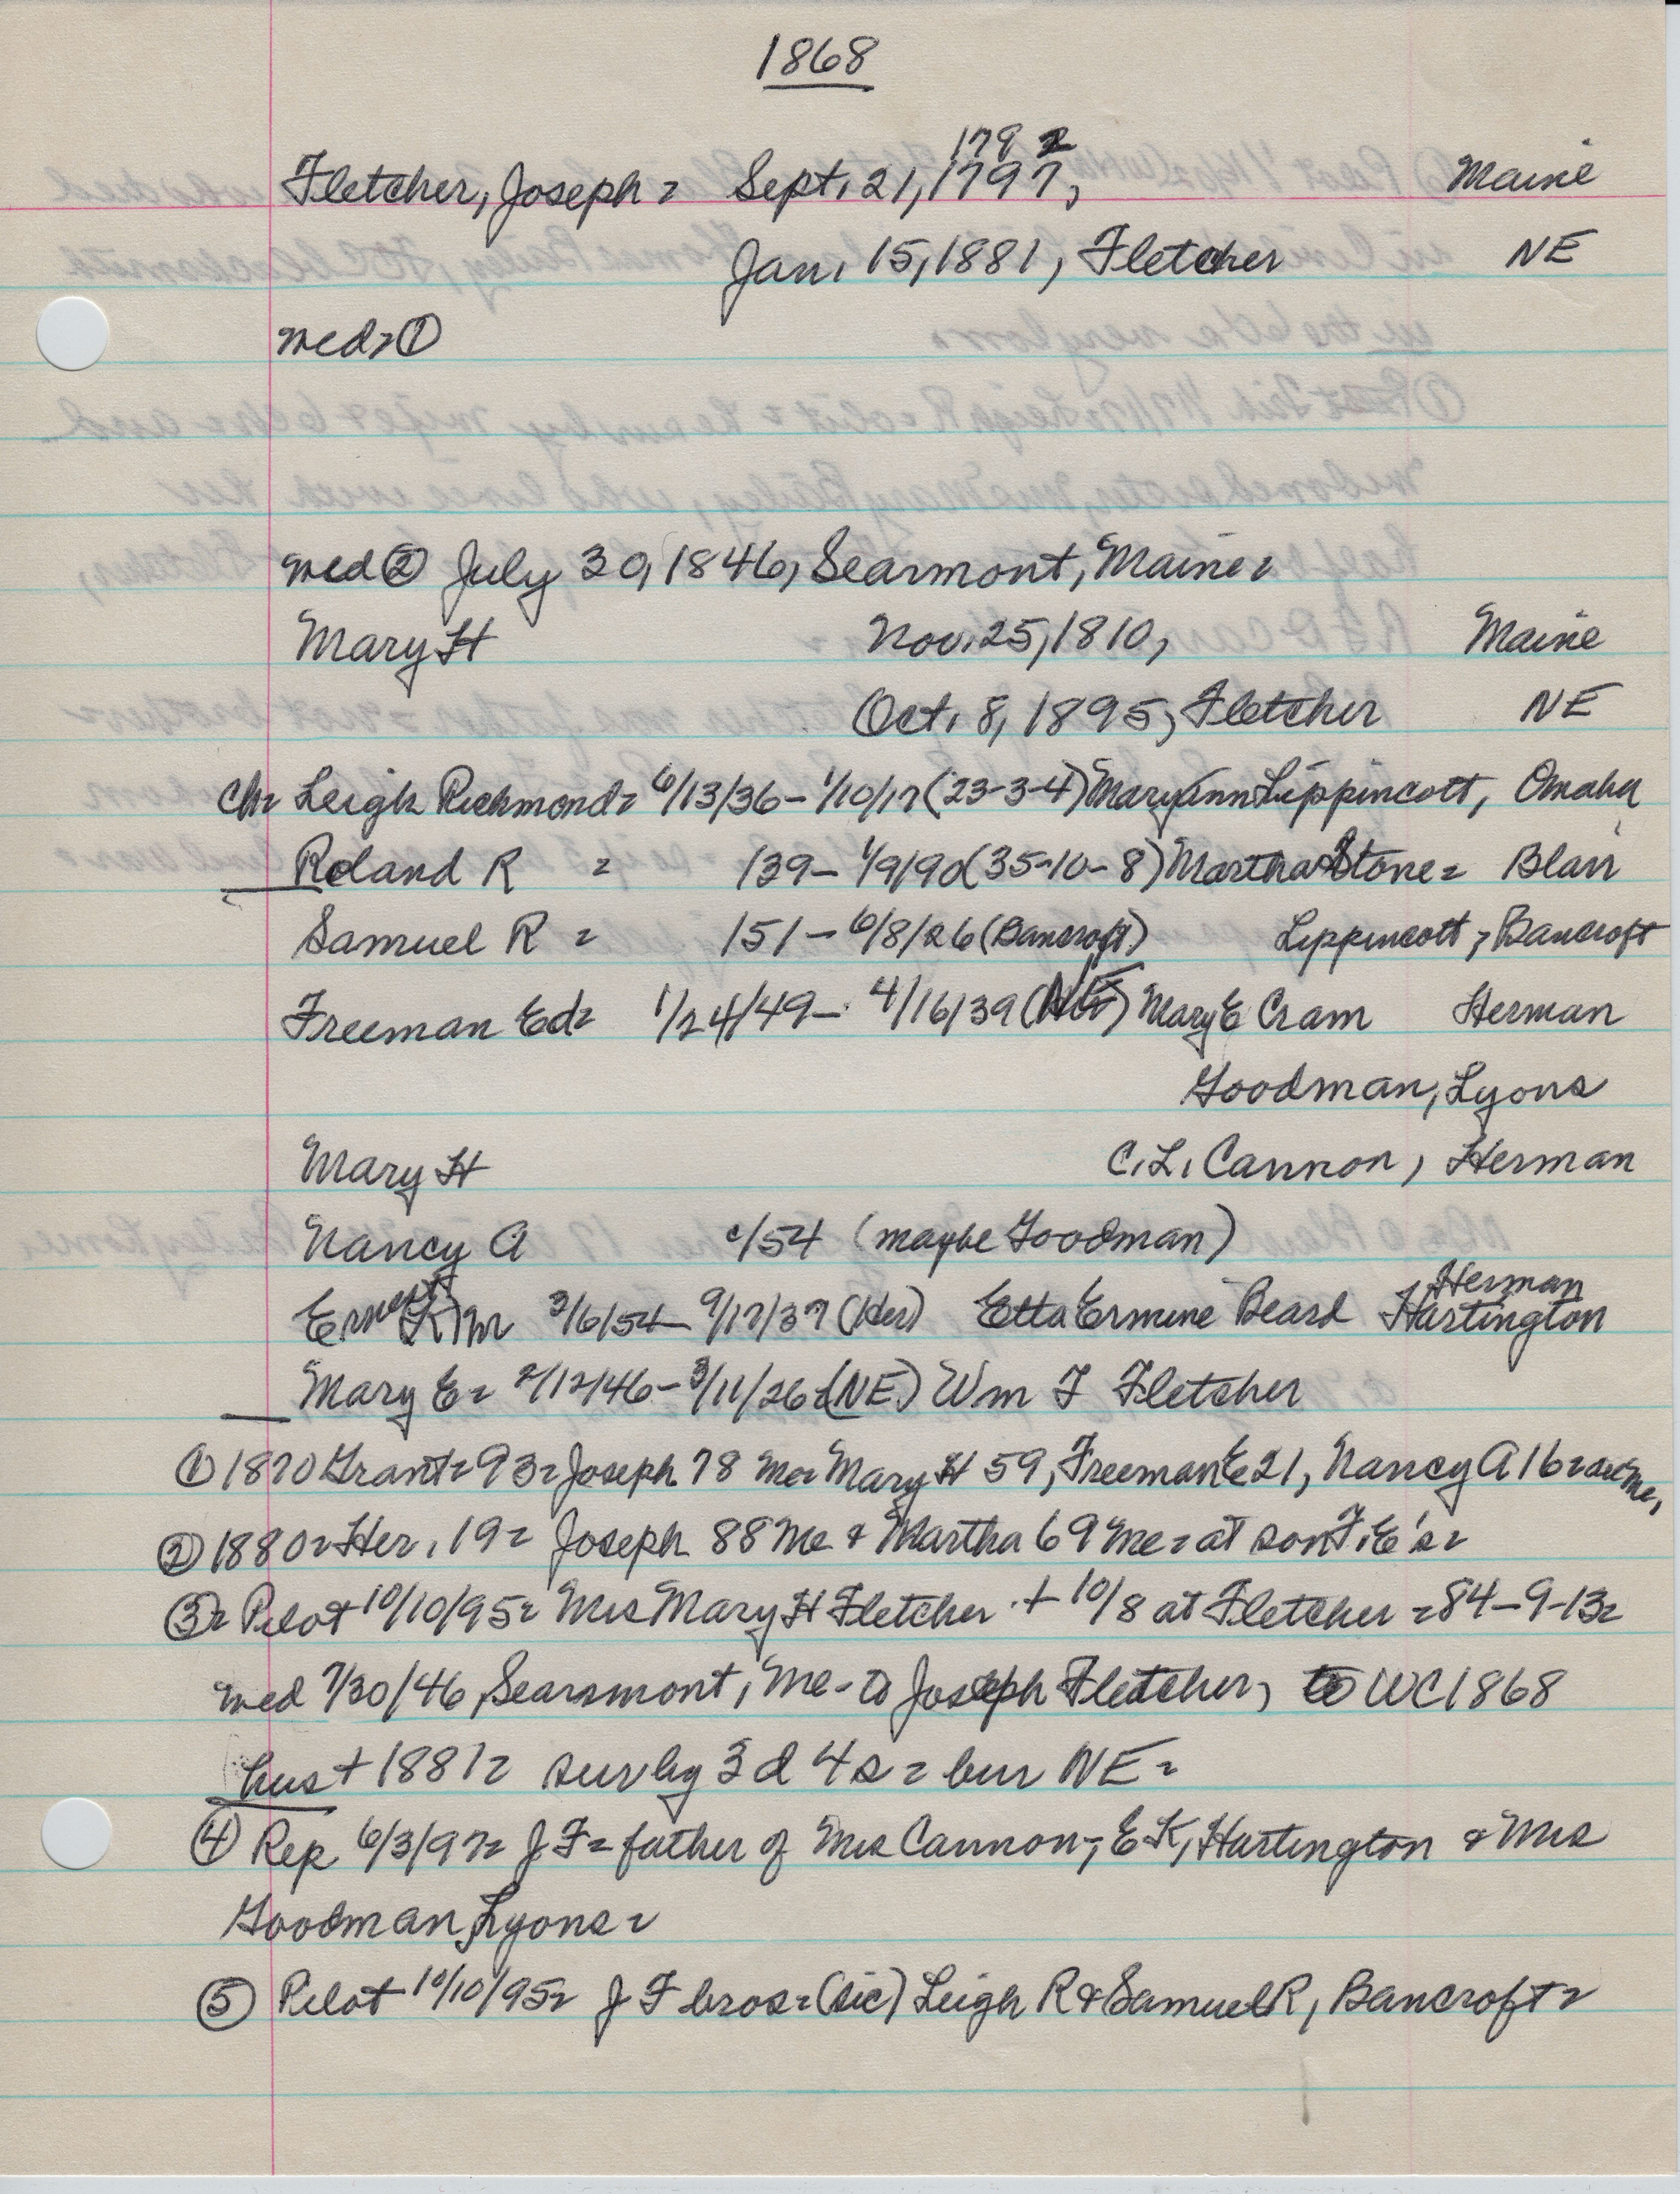 1868
1792
Fletcher, Joseph = Sept. 21, 1797, Maine
Jan. 15, 1881, Fletcher NE
med = ①
med ② July 30, 1846, Searmont, Maine =
Mary H Nov. 25, 1810, Maine
Oct. 8, 1895, Fletcher NE
Ch = Leigh Richmond = 6/13/36 - 1/10/17 (23-3-4) Mary Ann Lippincott, Omaha
Roland R = /39 - 1/9/90 (35-10-8) Martha Stone = Blair
Samuel R = /51 - 6/8/26 (Bancroft) Lippincott, Bancroft
Freeman Ed = 1/24/49 - 4/16/39 (NE) Mary E Cram Herman
Goodman, Lyons
Mary H C. L. Cannon, Herman
Nancy A c/54 (maybe Goodman)
Herman
Ernest K)m 3/6/54 - 9/17/37 (Her) Etta Ermine Beard Hartington
Mary E = 2/12/46 - 3/11/26 (NE) Wm F Fletcher
① 1870 Grant = 93 = Joseph 78 Me = Mary H 59, Freeman E 21, Nancy A 16 = all Me,
② 1880 = Her. 19 = Joseph 88 Me & Martha 69 Me = at son F. E's =
③ = Pilot 10/10/95 = Mrs Mary H Fletcher + 10/8 at Fletcher = 84-9-13 =
med 7/30/46, Searsmont, Me - to Joseph Fletcher, to WC 1868
hus + 1881 = surv by 3 d 4 s = bur NE =
④ Rep 6/3/97 = J F = father of Mrs Cannon, E K, Hartington & Mrs
Goodman, Lyons =
⑤ Pilot 10/10/95 = J F bros = (sic) Leigh R & Samuel R, Bancroft =